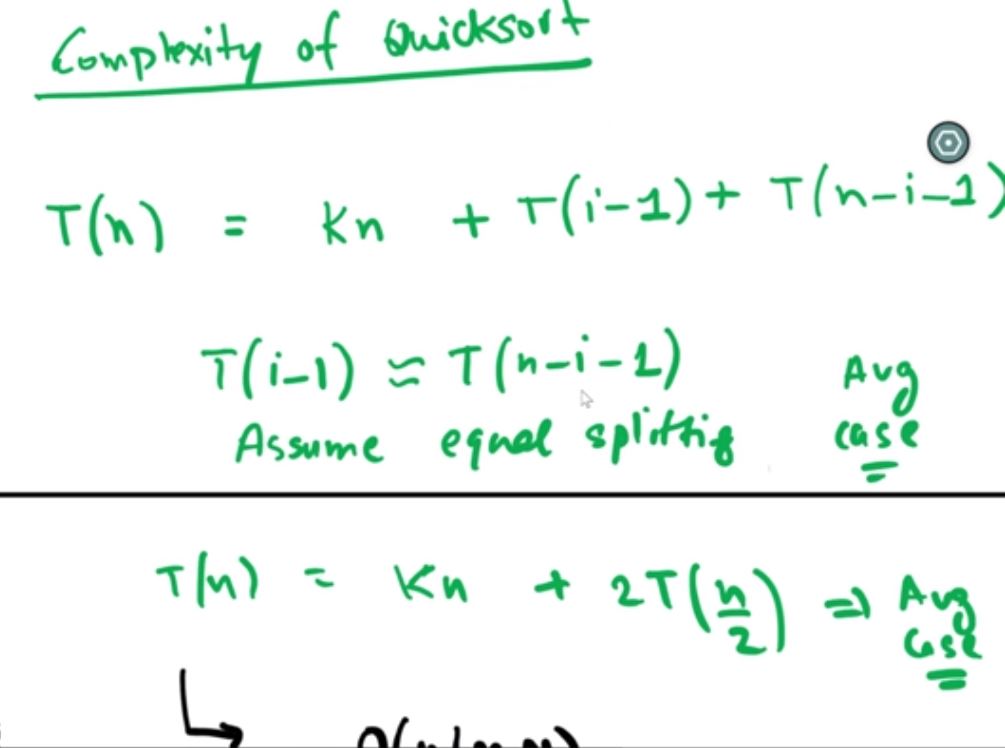 Complexity of Quicksort
T(n) = Kn + T(i-1) + T(n-i-1)
T(i-1) ≈ T(n-i-1) Avg
Assume equal splitting case
T(n) = Kn + 2T(n/2) => Avg
Case